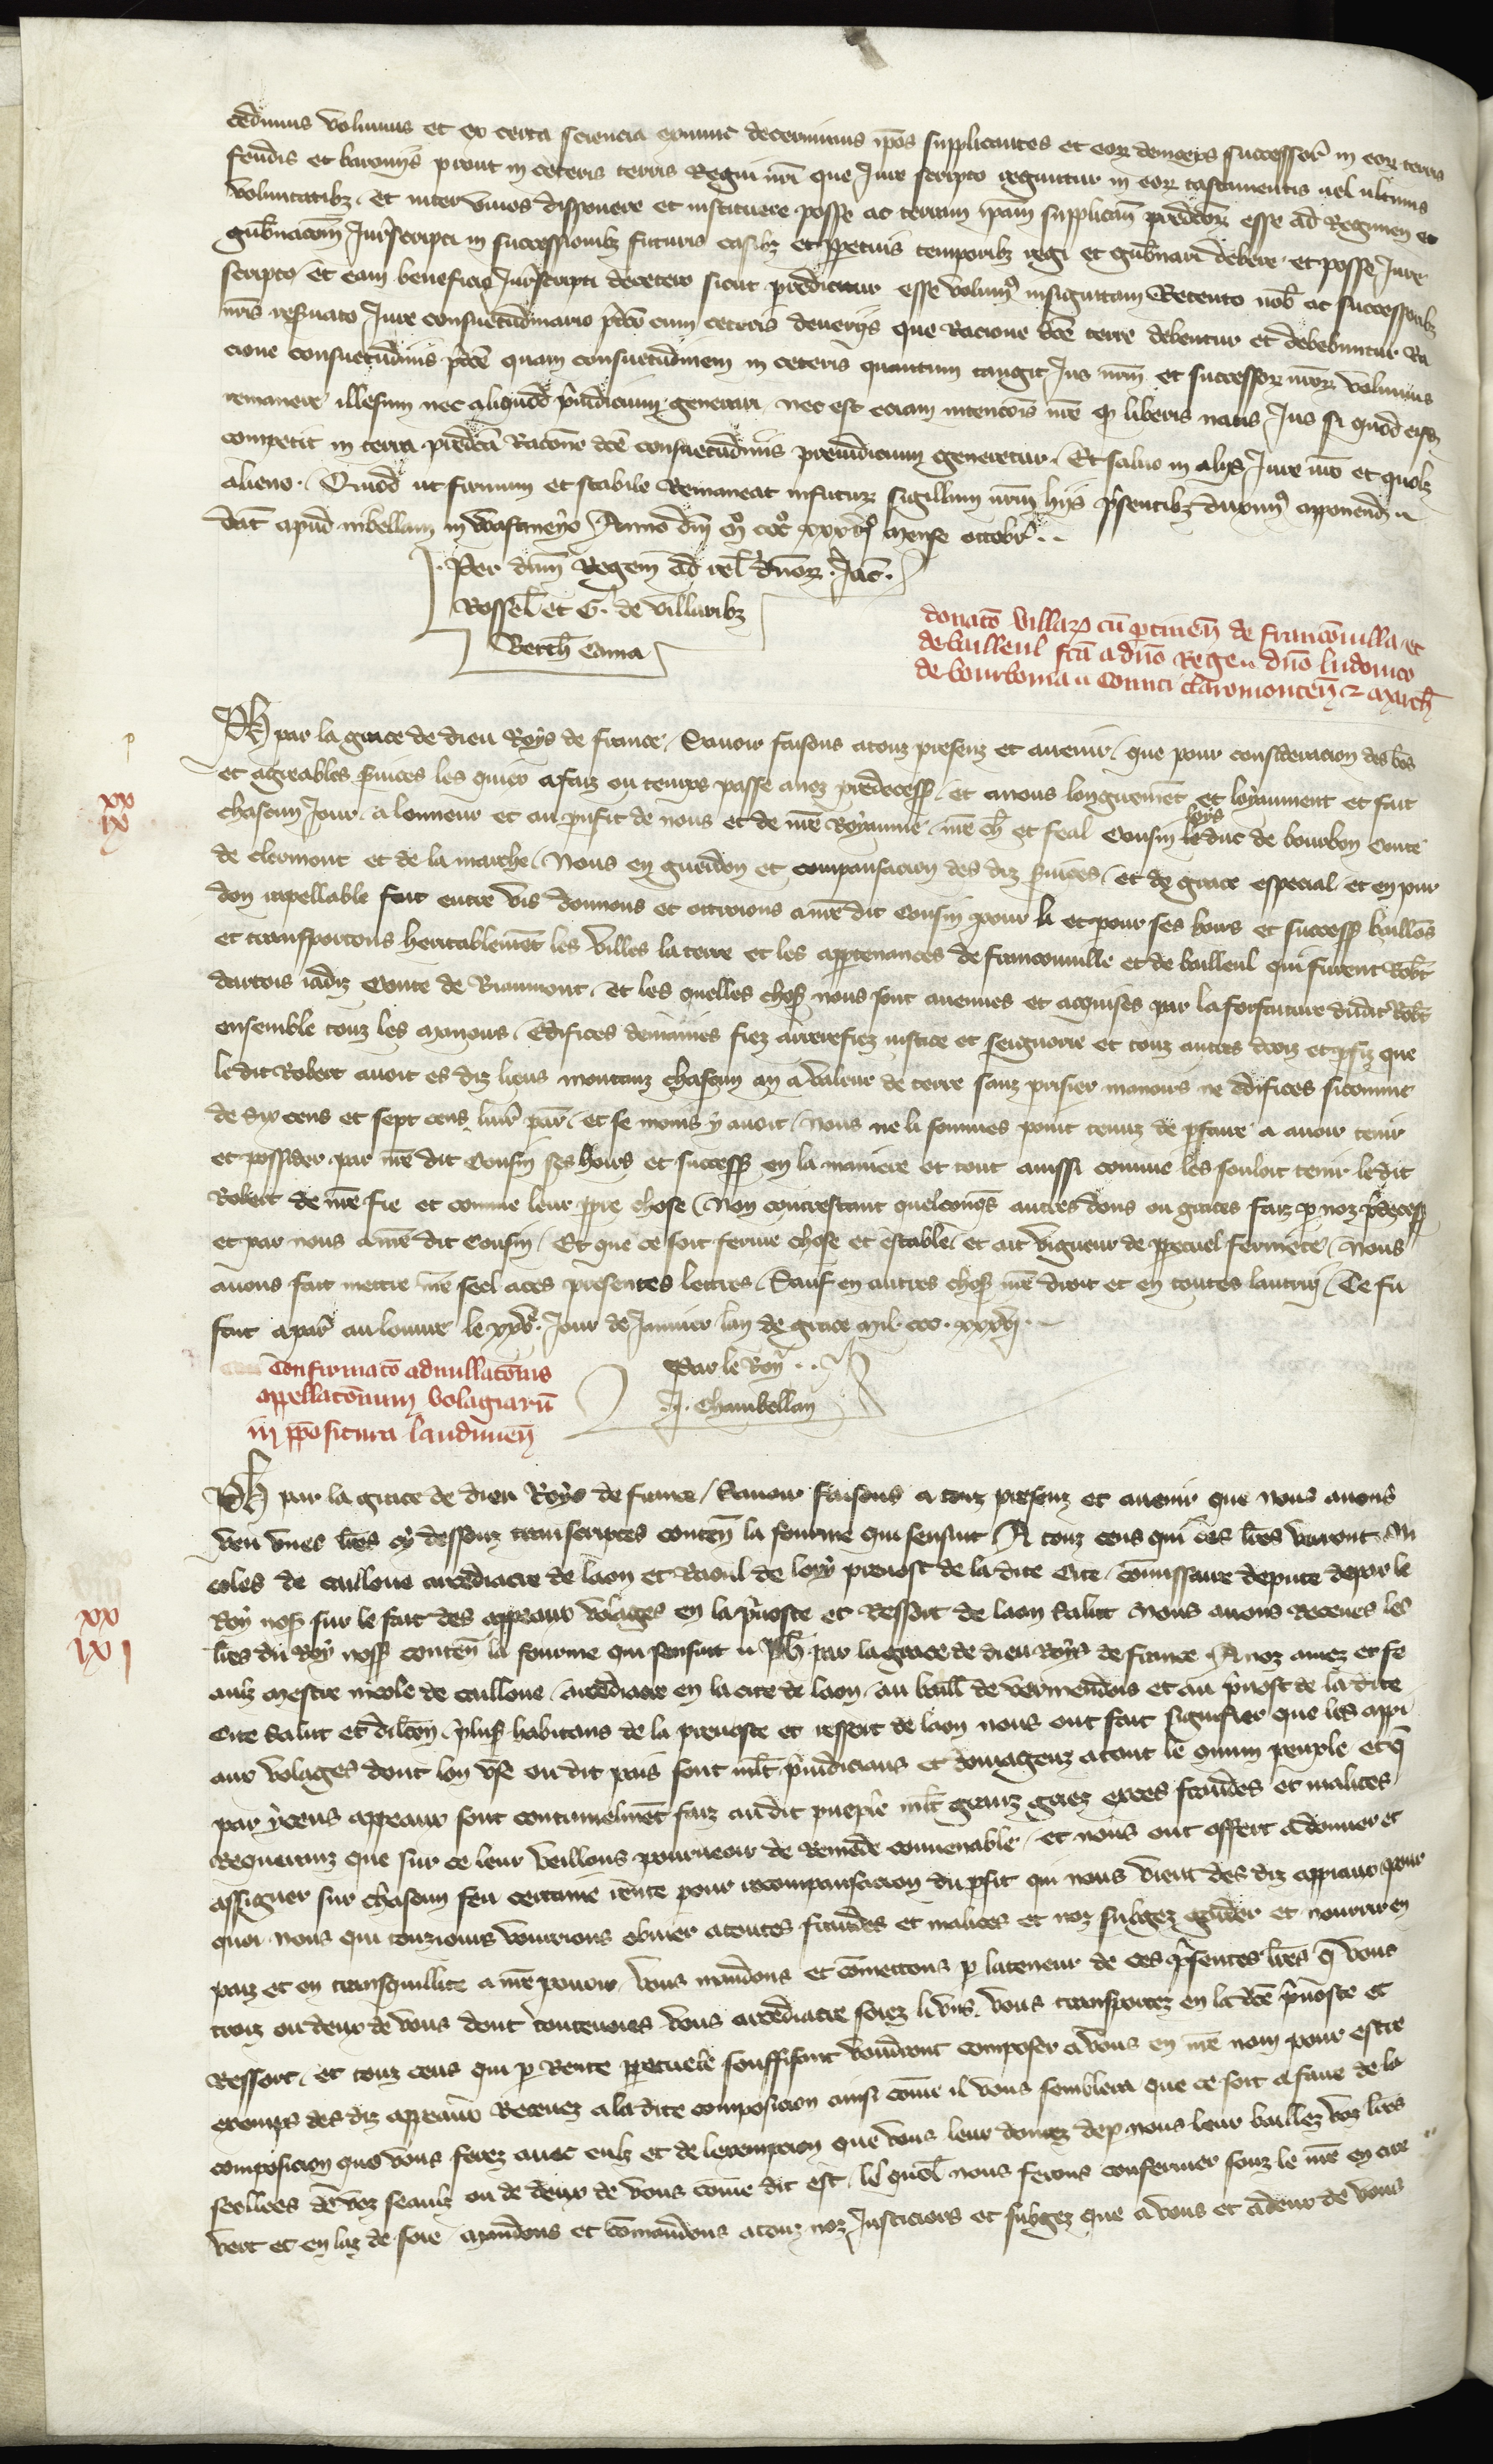 cedimus volumus et ex certa sciencia exnunc decernimus ip̄os supplicantes et eor deinceps successor̄ in eor terris
feudis et baroniis prout in ceteris terris Regni nr̄i que Jure scripto reguntur in eor testamentis uel ultimis
voluntatibz et inter viuos disponere et instituere posse ac terram ip̄am supplicm̄ predc̄or esse ad Regimen et
gub̄nacōm Jurisscripti in successionibz futuris casibz et perpetuis temporibz regi et gub̄nari debere et posse Jure
scripto et eam beneficio Jurisscripti decetero sicut predicitur esse volum9 insignitam Retento nob̄ ac successoribz
nr̄is reseruato Jure consuetudinario p̄dc̄o cum ceteris deueriis que Racione dc̄e terre debentur et debebuntur Ra
cione consuetudinis p̄dc̄e quam consuetudinem in ceteris quantum tangit Jus nr̄m et successor nr̄or volumus
remanere illesum nec aliquod p̄iudicium generari nec est eciam intencōis nr̄e q liberis natis Jus si quod eisd
competit in terra predc̄a Racōne dc̄e consuetudinis preiudicium generetur Et saluo in aliis Jure nr̄o et quolz
alieno. Quod ut firmum et stabile Remaneat infutur sigillum nr̄m hiis p̄sentibz duxim9 apponend
dat̄ apud nibellam in Wastineyo Anno dn̄i mo ccco xxxvio mense octobr̄ ..
Per dn̄m Regem ad rel̄ dn̄or. Jac̄.
Rossel̄ et G. de villaribz
Berth̄ Cama
donacō villar cū ptinen̄ de franconuilla et
de bailleul fc̄a a dn̄o Rege dn̄o ludouico
de bourbonia Comiti claromonten̄ 2 march̄
Ph̄ par la grace de dieu Roys de france Sauoir faisons atouz presenz et auenir que pour consideracion des bōs
et agreables seruices les quiex afaiz ou temps passe anoz predecess et anous longuemēt et loyaument et fait
chascun Jour a lonneur et au proufit de nous et de nr̄e Royaume nr̄e ch̄ et feal Cousin loys le duc de bourbon Conte
de clermont et de la marche Nous en guerdon et compansacion des diz seruices et de grace especial et en pur
don irrapellable fait entre vis donnons et ottroions anr̄e dit Cousin pour li et pour ses hoirs et success baillōs
et transportons heritablement les villes la terre et les appertenances de franconuille et de bailleul qui furent Rob̄t
dartois iadiz Conte de Biaumont et les quelles chos nous sont auenues et acquises par la forfaiture dudit Rob̄t
ensemble touz les manoirs Edifices demaines fiez arrerefiez iustice et seignorie et touz autres droiz et profiz que
le dit Robert auoit es diz lieus montanz chascun an a valeur de terre sanz prisier manoirs ne edifices sicomme
de six cens et sept cens liur̄ par̄ et se moins y auoit nous ne li sommes point tenuz de parfaire a auoir tenir
et possider par nr̄e dit Cousin ses hoirs et success en la maniere et tout aussi comme les souloit tenir ledit
Robert de nr̄e fie et comme leur propre chose Non contrestant quelconqs autres dons ou graces faiz p noz p̄decess
et par nous anr̄e dit Cousin Et que ce soit ferme chose et estable et ait vigueur de perpetuel fermete Nous
auons fait mettre nr̄e seel aces presentes lettres Sauf en autres chos nr̄e droit et en toutes lautrui Ce fu
fait a par̄ au louure le xxve Jour de Januier lan de grace mil ccc. xxxvi.
Par le Roy ..
J. Chambellan
Confirmacō adnullacōnis
apellacōnum volagiarū
in p̄positura laudunen̄
Ph̄ par la grace de dieu Roys de france Sauoir faisons a touz presenz et auenir que nous auons
veu vnes lr̄es cy dessouz transcriptes conten̄ la fourme qui sensuit A touz ceus qui ces lr̄es verront Ni
coles de caillone arcediacre de laon et Raoul de loiry preuost de la dite Cite cōmissaire depute depar le
Roy nos sur le fait des appeaux volages en la p̄uoste et Ressort de laon Salut Nous auons Receues les
lr̄es du Roy noss conten̄ la fourme qui sensuit Ph̄ par la grace de dieu Roys de france A noz amez et fe
aulz mestre nicole de caillone arcediacre en la cite de laon au baill̄ de vermendois et au p̄uost de la dite
Cite Salut et dilc̄on. plus habitans de la preuoste et ressort de laon nous ont fait signifier que les appi
aux volages dont lon vse ou dit pais sont ml̄t p̄iudiciaus et domagenz atout le cumun peuple et q̄
par yceus appeaux sont continuelmēt faiz audit pueple ml̄t granz griez exces fraudes et malices
Requeranz que sur ce leur veillons pourueoir de Remede conuenable et nous ont offert adonner et
assigner sur chascun feu certaine rente pour recompansacion du profit qui nous vient des diz appiaux pour
quoi nous qui touziours vourrions obuier atoutes fraudes et malices et noz subgez garder et nourrir en
paiz et en transquillite a nr̄e pouoir vous mandons et cōmettons p lateneur de ces p̄sentes lr̄es q̄ vous
troiz ou deux de vous dont toutesuoies vous arcediacre soiez li vns vous transportez en la dc̄e p̄uoste et
Ressort et touz ceus qui p Rente perpetuele souffisant voudront composer a vous en nr̄e nom pour estre
exemps des diz appeaux Receuez a la dite composicion ainsi cōme il vous semblera que ce soit a faire de la
composicion que vous ferez auec eulz et de lexempcion que vous leur donrez dep nous leur baillez voz lr̄es
seellees de voz seaulz ou de deux de vous cōme dit est les quel̄ nous ferons confermer souz le nr̄e en cire
vert et en laz de soie mandons et cōmandons atouz noz Justiciers et subgez que a vous et adeux de vous
p
xx
ix
xx
lxi